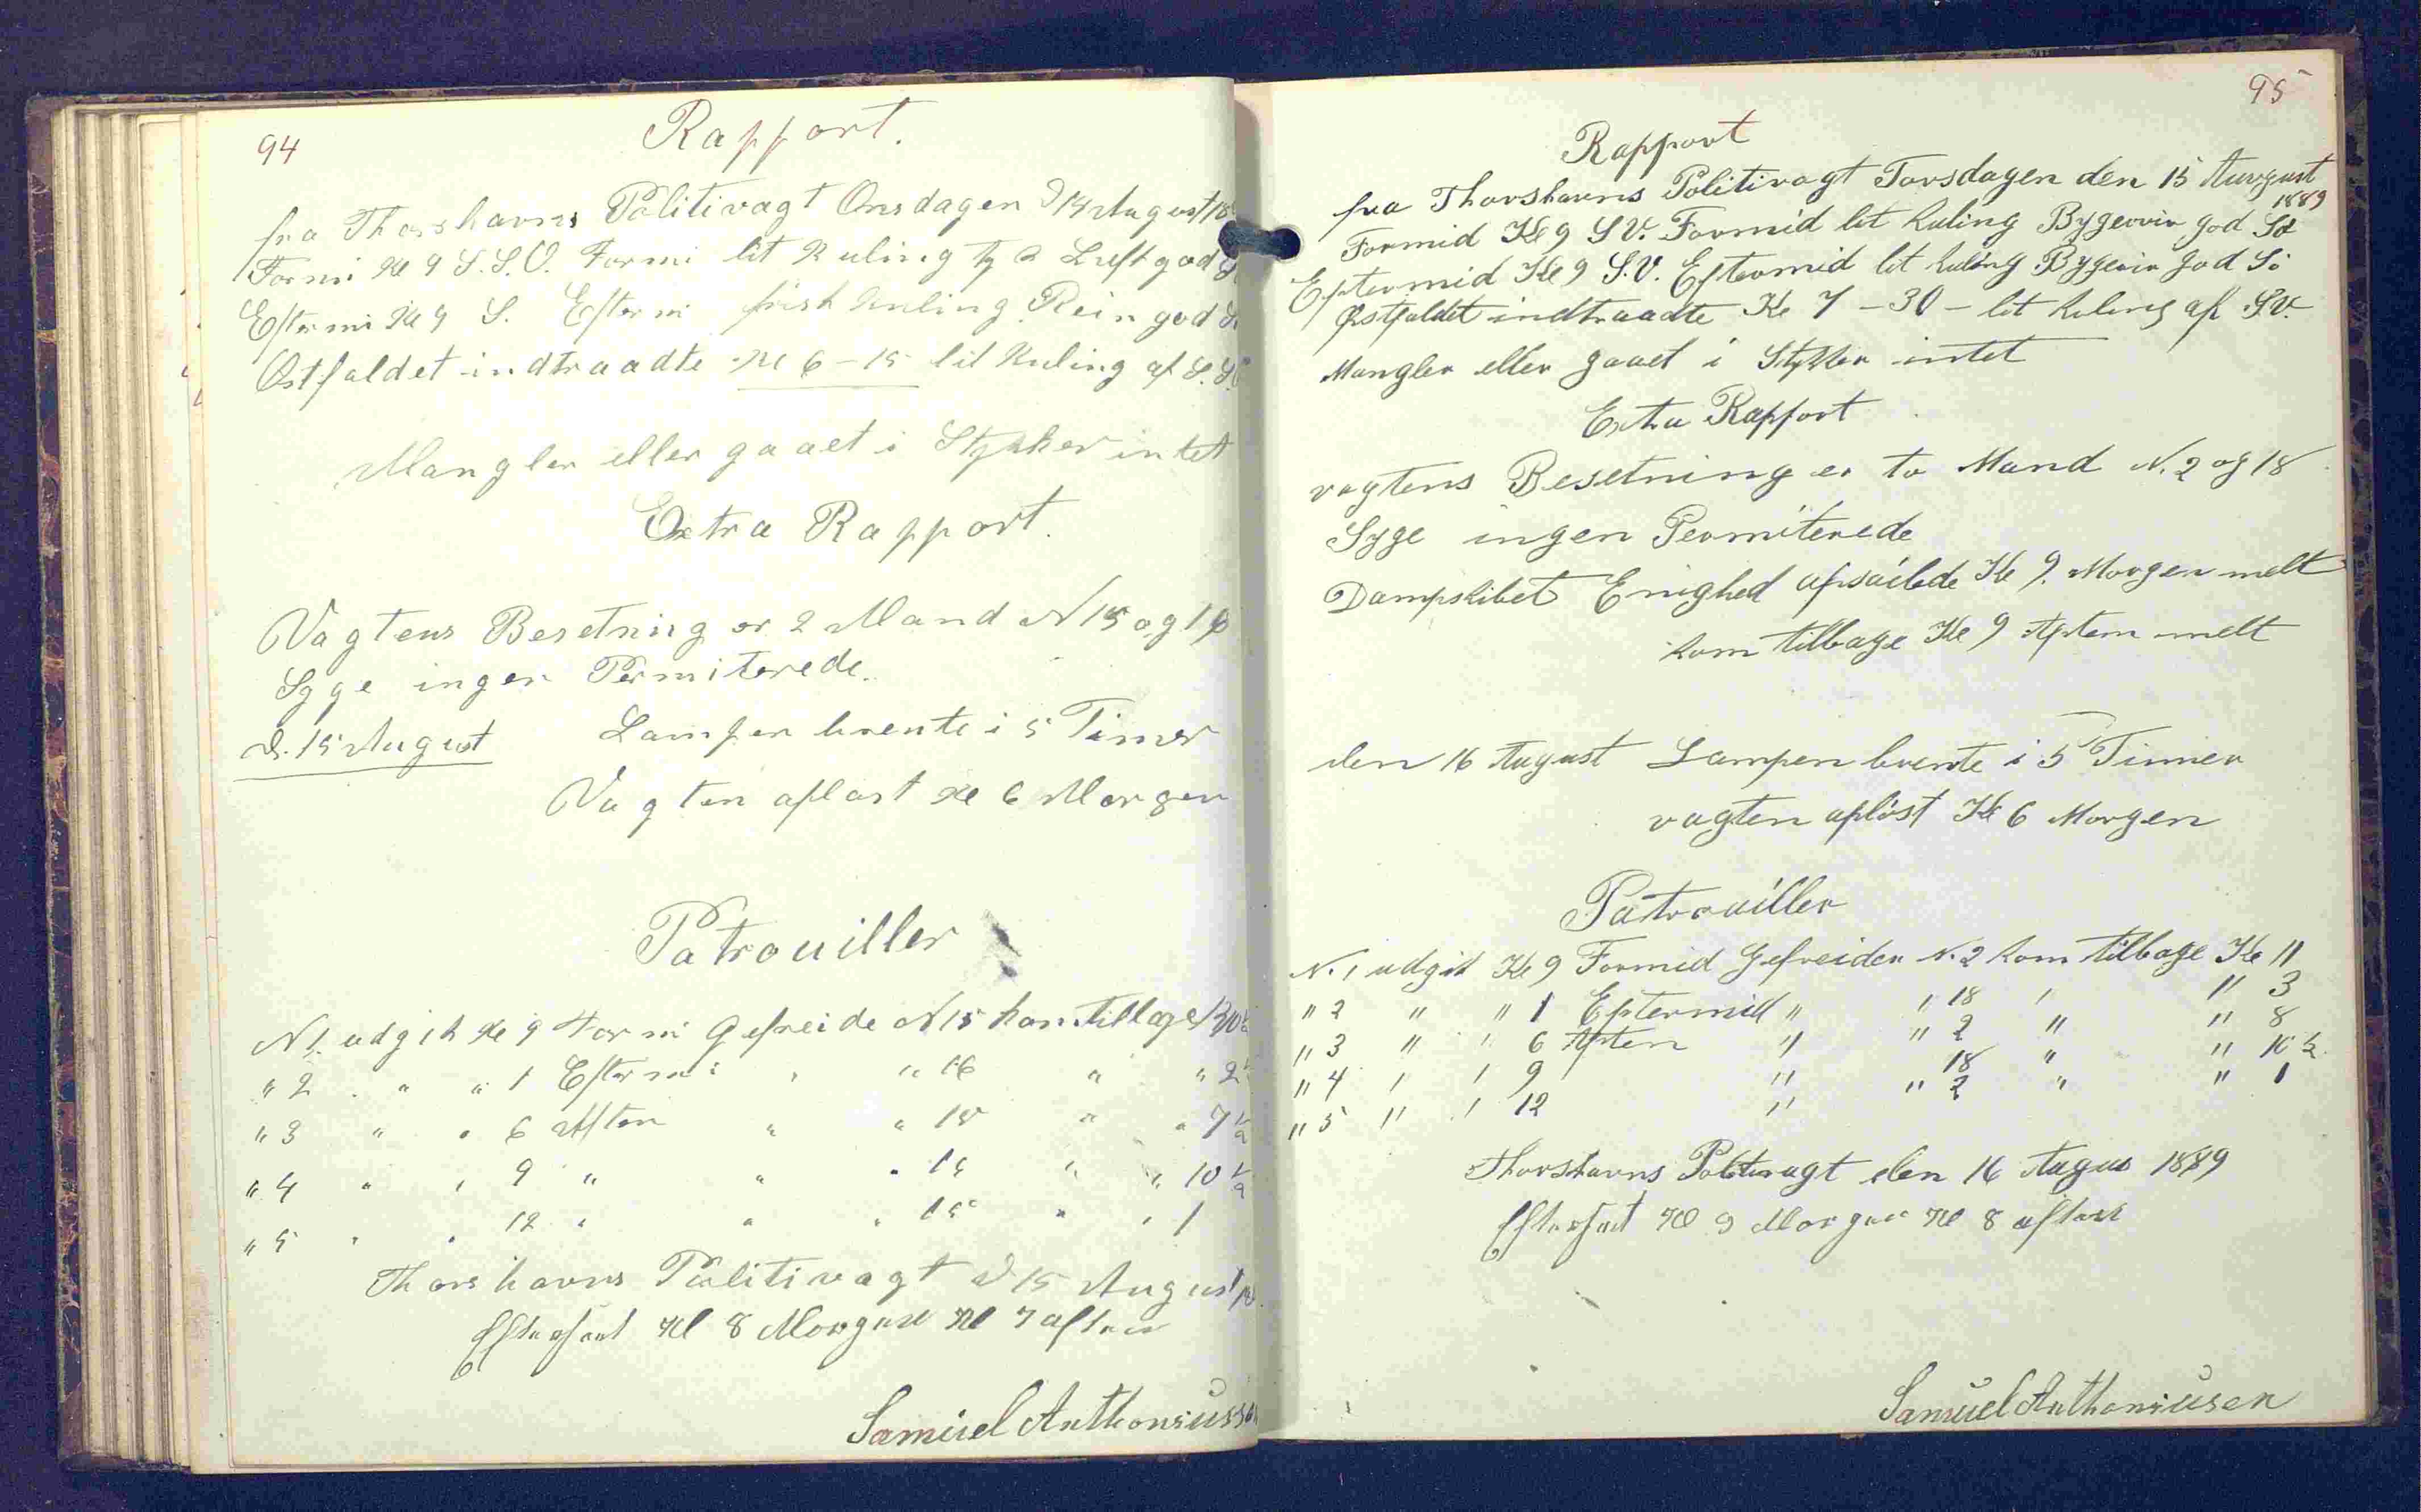 94
Rapport.
fra Thorshavns Politivagt Onsdagen d 14 August 18
Formi Kl 9 S.S.V. Formi lit Kuling tyk Luft god
Eftermi Kl 9 S. Efterm frisk Kuling Rein god
Østfaldet indtraadte Kl 6-15 lit Kuling af S.
Mangler eller gaaet i Stykker intet
Extra Rapport.
Vagtens Besetning er 2 Mand N 15 og 16
Syge ingen Permiterede.
d. 15 August Lampen brente i 5 Timer
Vagten afløst Kl 6 Morgen
Patrouiller
N 1. udgik Kl 9 Formi Gefreide N 15 kom tilbage
" 2 " " 1 Eftermi " " 16 " " 2
" 3 " " 6 Aften " " 15 " " 7 1/2
" 4 " " 9 " " " " " 10 1/2
" 5 " " 12 " " " 15 " " 1
Thorshavns Politivagt d 15 August
Eftersat Kl 8 Morgen Kl 7 aften
Samuel Anthoniussen
95
Rapport
fra Thorshavns Politivagt Torsdagen den 15 August
1889
Formid Kl 9 S.V. Formid let kuling Bygeveir god Sø
Eptermid Kl 9 S.V. Eftermid let kuling Bygevir god Sö
Østfaldet indtraadte Kl 7-30- let kuling af S.V.
Mangler eller gaaet i Stykker intet
Extra Rapport
vagtens Besetning er to Mand N. 2 og 18
Syge ingen Permiterede
Dampskibet Enighed afsailede Kl 9. Morgen melt
kom tilbage Kl 9 Aptem melt
den 16 August Lampen brente i 5 Timer
vagten aplöst Kl 6 Morgen
Patrouiller
N. 1 udgik Kl 9 Formid Gefreider N. 2 kom tilbage Kl 11
" 2 " " 1 Eptermid " " 18 " " 3
" 3 " " 6 Apten " " 2 " " 8
" 4 " " 9 " 18 " " 10 1/2
" 5 " " 12 " " 2 " " 1
Thorshavns Politivagt den 16 Augus 1889
Eftersat Kl 9 Morgen Kl 8 aften
Samuel Anthoniusen